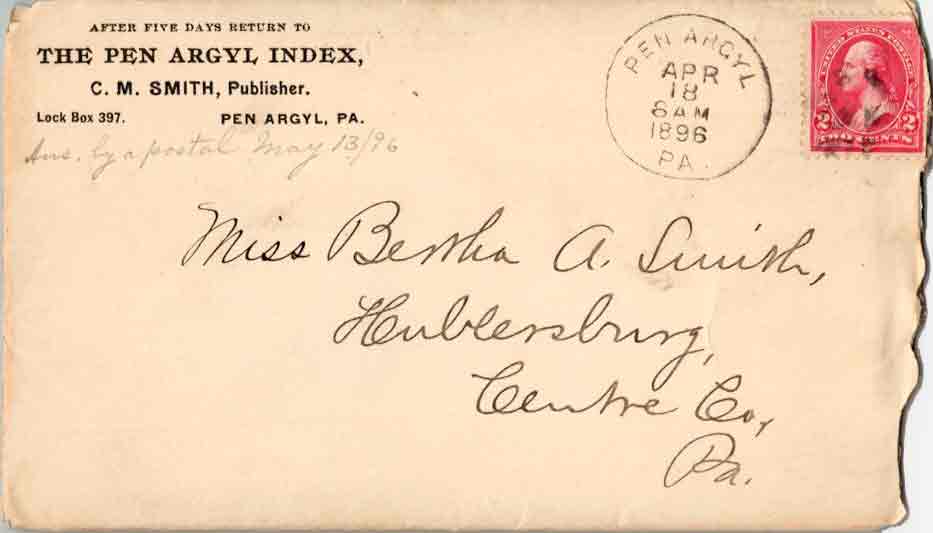 AFTER FIVE DAYS RETURN TO
THE PEN ARGYL INDEX,
C. M. SMITH, Publisher.
Lock Box 397. PEN ARGYL, PA.
Ans. by a postal May 13/96
PEN ARGYL
APR
18
8 AM
1896
PA.
UNITED STATES POSTAGE
2 TWO CENTS 2
Miss Bertha A. Smith,
Hublersburg,
Centre Co,
Pa.